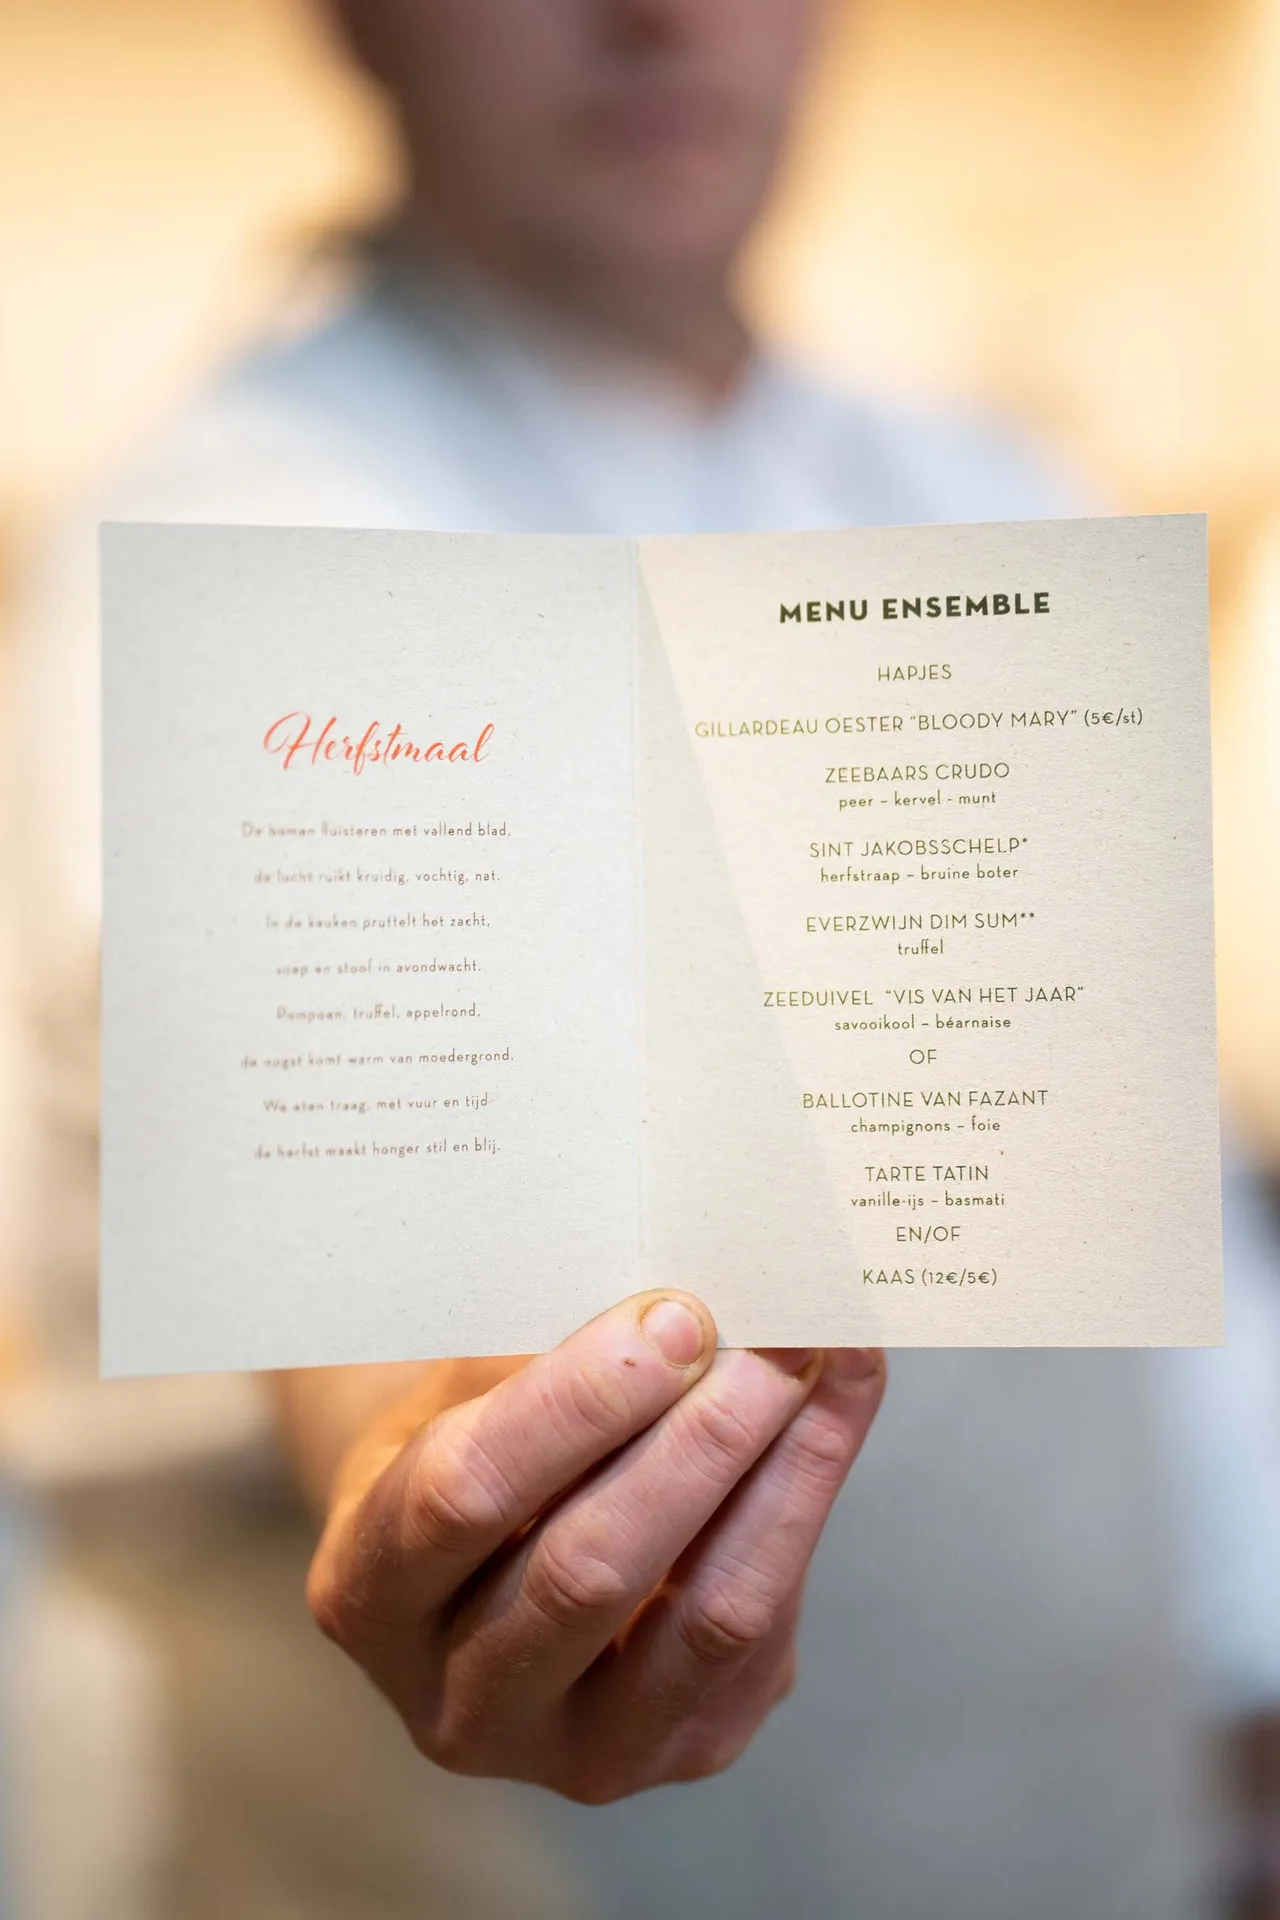 Herfstmaal
De bomen fluisteren met vallend blad,
de lucht ruikt kruidig, vochtig, nat.
In de keuken pruttelt het zacht,
soep en stoof in avondwacht.
Pompoen, truffel, appelrond,
de oogst komt warm van moedergrond.
We eten traag, met vuur en tijd
de herfst maakt honger stil en blij.
MENU ENSEMBLE
HAPJES
GILLARDEAU OESTER "BLOODY MARY" (5€/st)
ZEEBAARS CRUDO
peer – kervel - munt
SINT JAKOBSSCHELP*
herfstraap – bruine boter
EVERZWIJN DIM SUM**
truffel
ZEEDUIVEL "VIS VAN HET JAAR"
savooikool – béarnaise
OF
BALLOTINE VAN FAZANT
champignons – foie
TARTE TATIN
vanille-ijs – basmati
EN/OF
KAAS (12€/5€)